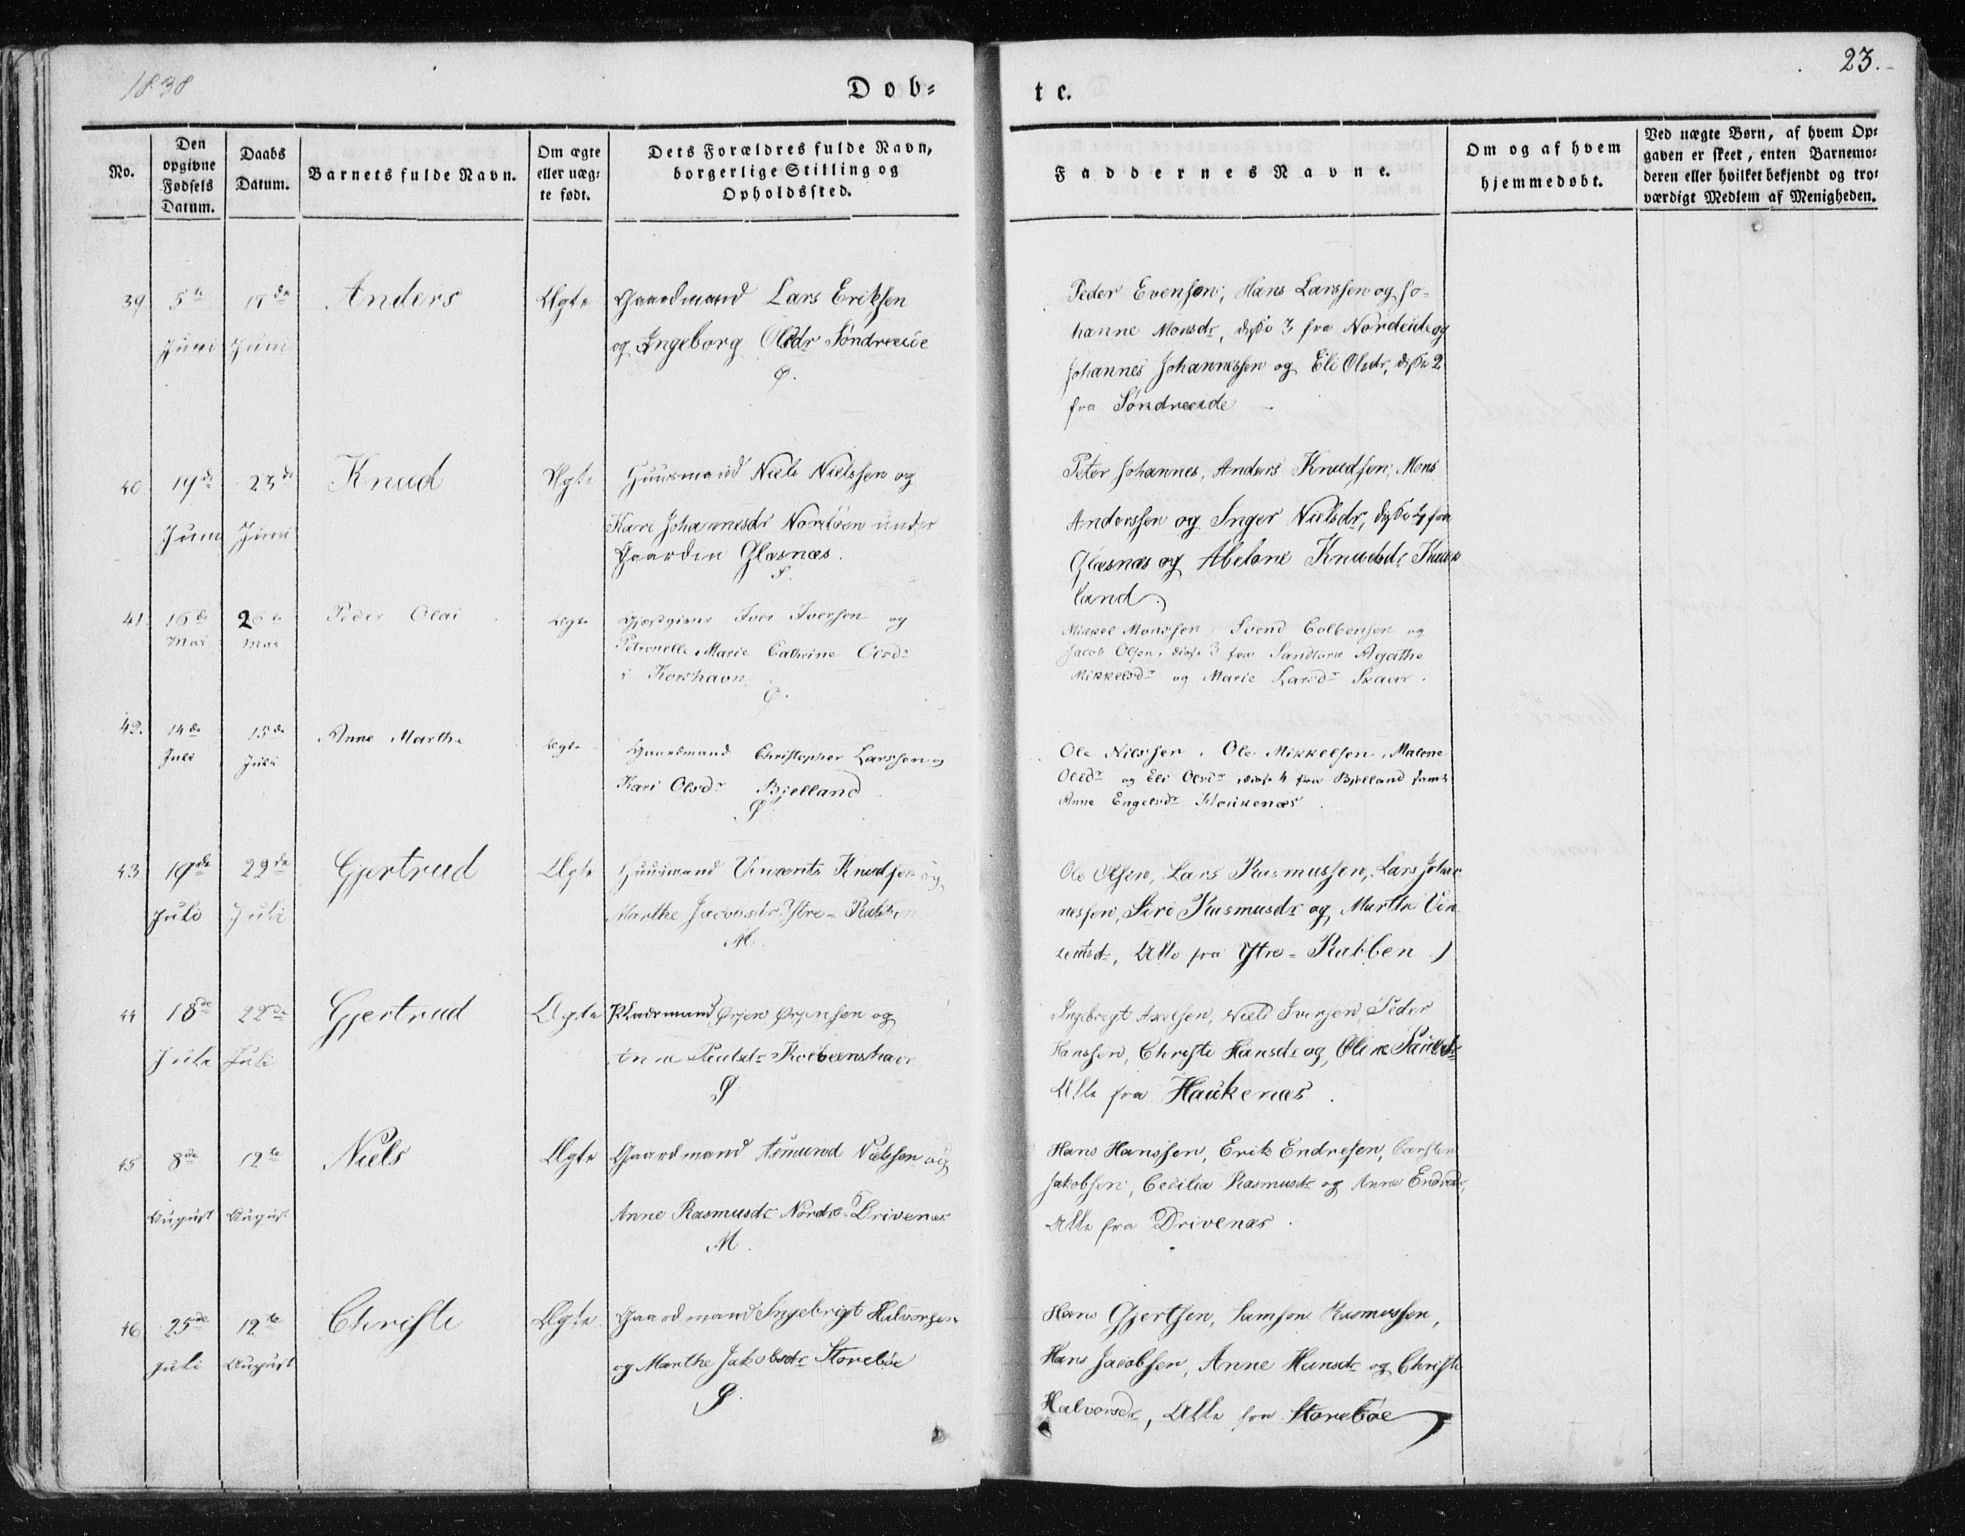 1838
Døb=
te.
23.
No.
Den opgivne Fødsels Datum.
Daabs Datum.
Barnets fulde Navn.
Om ægte eller uægte født.
Dets Forældres fulde Navn, borgerlige Stilling og Opholdssted.
Faddernes Navne.
Om og af hvem hjemmedøbt.
Ved uægte Børn, af hvem Opgaven er skeet, enten Barnemoderen eller hvilket bekjendt og troværdigt Medlem af Menigheden.
39 5te Juni 17de Juni Anders Ægte
Gaardmand Lars Eriksen
og Ingeborg Olsdr Søndreeide
Ø.
Peder Evensen, Hans Larssen og Jo-
hanne Monsdr, disse 3 fra Nordeide og
Johannes Johannessen og Eli Olsdr, disse 2
fra Søndreeide
40 19de Juni 23de Juni Knud Ægte
Huusmand Niels Nielssen og
Kari Johannesdr under
Gaarden Glesnæs.
Peter Johannes, Anders Knudsen, Mons
Anderssen og Inger Nielsdr, disse 4 fra
Glesnæs og Abelone Knudsdr
land
41 16de Mai 26de Mai Peder Olai Ægte
Gjæstgiver Iver Iversen og
Petronelle Marie Cathrine Olsdr
i Korshavn
Ø.
Mikkel Monssen, Svend Colbensen og
Jacob Olsen, disse 3 fra Sandtorv Agathe
Mikkelsdr og Marie Larsdr Skaar.
42. 14de Juli 15de Juli Anne Marthe Ægte
Gaardmand Christopher Larssen og
Kari Olsdr Bjelland
Ø
Ole Nilssen, Ole Mikkelsen, Malene
Olsdr og Eli Olsdr, disse 4 fra Bjelland samt
Anne Engelsdr Houkenæs.
43 19de Juli 22de Juli Gjertrud Ægte
Huusmand Vincents Knudsen og
Marthe Jacobsdr Ytre-Rabben
M.
Ole Olsen, Lars Rasmussen, Lars Johan-
nessen, Siri Rasmusdr og Marthe Vin-
centsdr, Alle fra Ytre-Rabben.
44 18de Juli 22de Juli Gjertrud Ægte
Pladsmand Ørjen Ørjensen og
Paulsdr Kobbenshavn
Ø
Ingebregt Axelsen, Niels Iversen, Peder
Hanssen, Christi Hansdr og Oline Paulsdr
Alle fra Haukenæs.
45 8de August 12te August Niels Ægte
Gaardmand Asmund Nielsen og
Anne Rasmusdr Nordre-Drivenæs
M.
Hans Hanssen, Erik Endresen, Carsten
Jakobsen, Cecilia Rasmusdr og Anne Endresdr,
Alle fra Drivenæs.
46 25de Juli 12te August Christi Ægte.
Gaardmand Ingebrigt Halvorsen
og Marthe Jakobsdr Storebøe
Ø.
Hans Gjertsen, Samson Rasmussen,
Hans Jacobsen, Anne Hansdr og Christi
Halvorsdr, Alle fra Storebøe